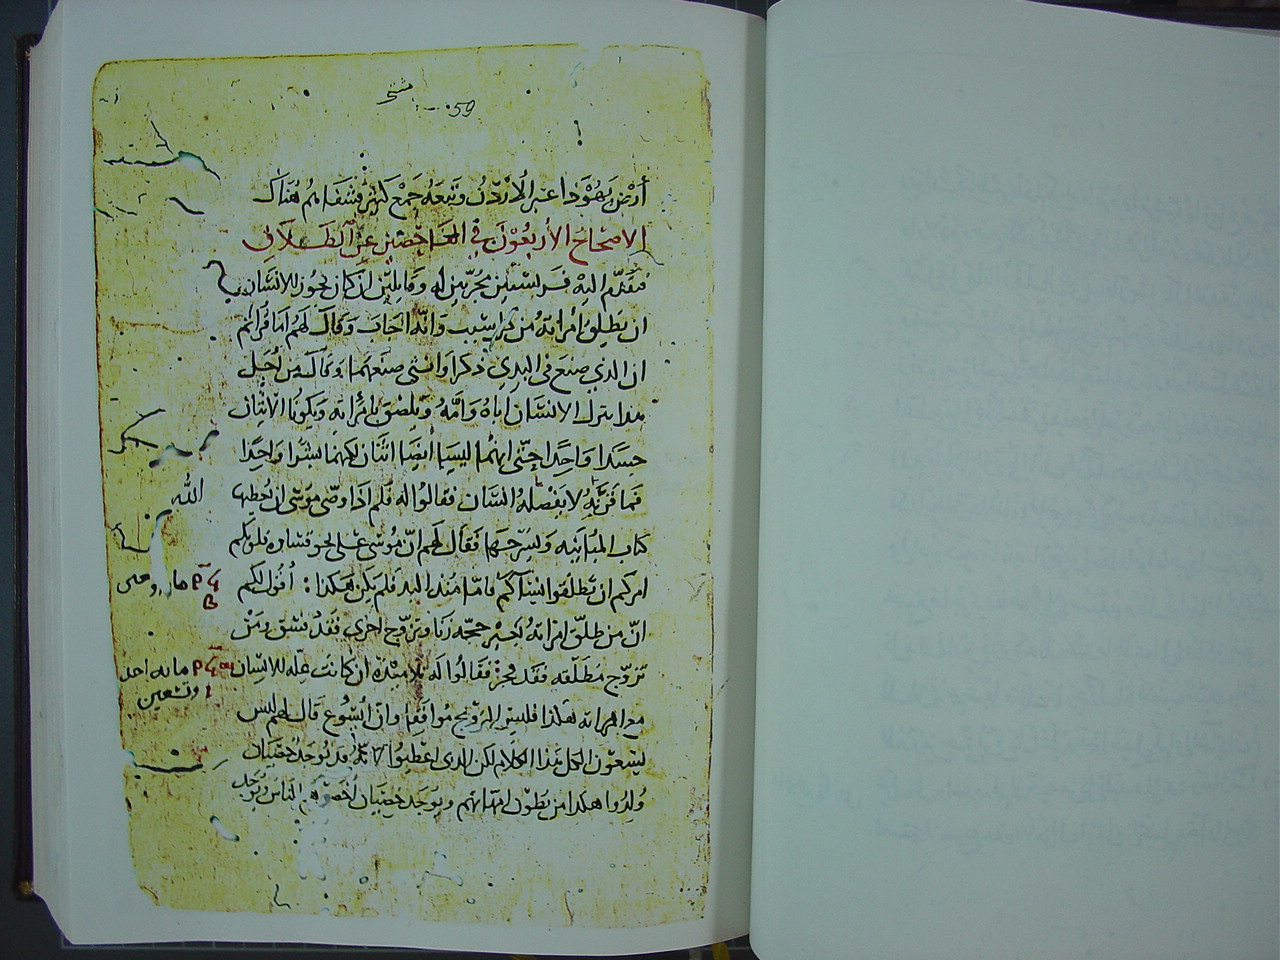 متى
59
أرْض يَهُوَذا عبر الْارْدُن وَتَبعَهُ جَمْع كَثير فشَفاهُم هُنَاك
الاصحاح الأربعُوْنَ في الفاحصين عن الطلاق
فتقدّم اليْهِ فريسيين مجرّبين له وقايلين ان كان يجُوز للانسَان
ان يَطلق أمرأتهُ من كل سبب وَانّه اجَابَ وَقال لهُم امَا قرأتم
ان الذي صنَع في البدي ذكرا وَانثى صنَعهمَا وَقال من اجْل
هذا يترك الانسَان اباهُ وَامّهُ وَيلصَق بامْرأته وَيكونا الاثنان
جسَدا وَاحِدًا حتّى انهمَا ليسَا ايْضا اثنان لكنهمَا بشرًا وَاحِدًا
فما قرنَهُ الله لا يفصْلهُ انسَان فقالوُا له فلم اذا وصّى موسَى ان تُعطى
كتاب المبُاينه وَيُسَرّحَها فَقال لهم انّ مُوسَى عَلى نحو قساوه قلوبكم
امركم ان تطلقوا نسَاكم فامّا منذ البد فلم يكن هكذا : أقول لكم
انّ من طلّق امراتهُ بغير حجّه زنا وتزوّج اخرى فقد فسَق ومَنْ
تزوّج مطلّقه فقد فجرَ فقالوُا له تلاميذه ان كانت علّه للانسَان
مع امراته هكذا فليسَ التزويج موافقا وانّ ايسُوع قال لهم ليس
يسَعُون الكل هذا الكلام لكن الذي اعْطيوُا لانّه قد توجَدُ خصيَان
وُلدُوا هكذا من بطوْن امهاتهم ويوجَد خصيَان اخصَوهم الناس وَيُوجد
الله
م مايه احد
وتسعين